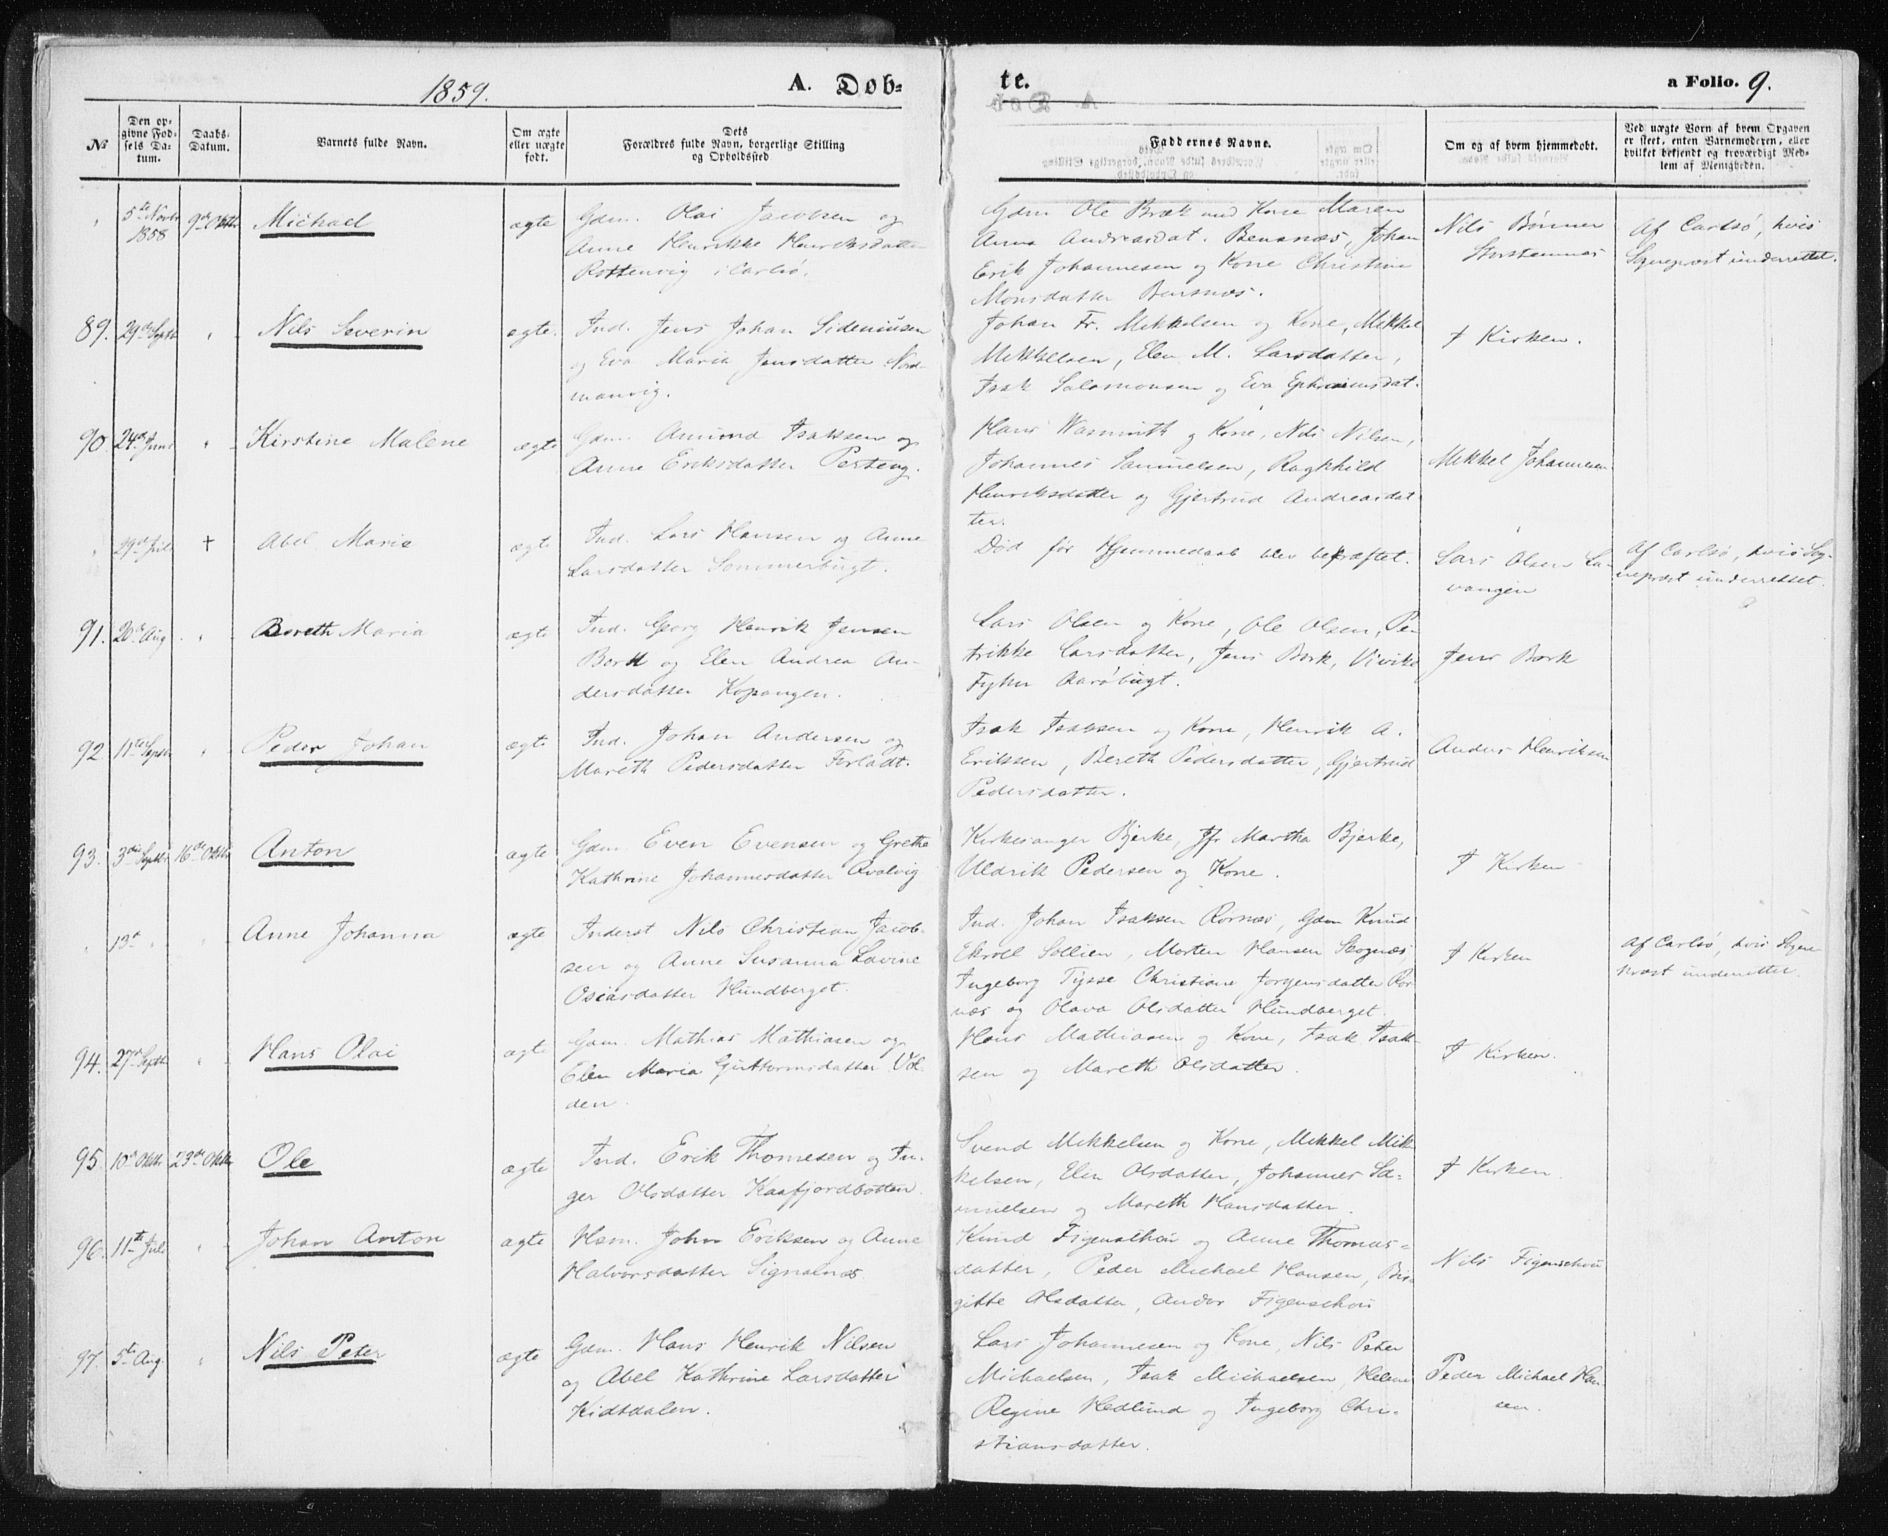 1859.
A. Dob=
te.
a Folio. 9.
No
Den op-
givne Fød-
sels Da-
tum.
Daabs-
Datum.
Barnets fulde Navn.
Om ægte
eller uægte
født.
Dets
Forældres fulde Navn, borgerlige Stilling
og Opholdssted
Faddernes Navne.
Om og af hvem hjemmedøbt.
Ved uægte Børn af hvem Opgaven
er skeet, enten Barnemoderen, eller
hvilket bekjendt og troværdigt Med-
lem af Menigheden.
" 5te Novbr 1858
9de Oktbr
Michael
ægte
Gdm. Olai Jacobsen og
Anne Henrikke Henriksdatter
Rottenvig i Carlsø.
Gdm Ole Bræk med Kone Maren
Anna Andreasdat. Bensnæs, Johan
Erik Johannesen og Kone Christine
Monsdatter Bensnæs.
Nils Bønner
Storstennæs
Af Carlsø, hvis
Sognepræst underrettet.
89. 29de Septbr "
Nils Severin
ægte.
Ind. Jens Johan Sideniusen
og Eva Maria Jensdatter Nord-
manvig.
Johan Fr. Mikkelsen og Kone, Mikkel
Mikkelsen, Elen M. Larsdatter,
Isak Salomonsen og Eva Ephraimsdat.
I Kirken.
90. 24de Juni "
Kirstine Malene
ægte
Gdm. Amund Isaksen og
Anne Eriksdatter Perteng.
Hans Wasmuth og Kone, Nils Nilsen,
Johannes Samuelsen, Ragnhild
Henriksdatter og Gjertrud Andreasdat
ter.
Mikkel Johannesen
" 29de Juli †
Abel Marie
ægte
Ind. Lars Hansen og Anne
Larsdatter Sommerbugt.
Død før Hjemmedaab blev bekræftet.
Lars Olsen La-
vangen
Af Carlsø, hvis Sog-
nepræst underrettet.
91. 20de Aug "
Bereth Maria
ægte
Ind. Georg Henrik Jensen
Bork og Elen Andrea An-
dersdatter Kopangen.
Lars Olsen og Kone, Ole Olsen, Pe-
trikke Larsdatter, Jens Bork, Vivike
Fyhn Aarøbugt.
Jens Bork
92 11te Septbr "
Peder Johan
ægte
Ind. Johan Andersen og
Mareth Pedersdatter Forladt.
Isak Isaksen og Kone, Henrik A.
Erikssen, Bereth Pedersdatter, Gjertrud
Pedersdatter.
Anders Henriksen
93. 3die Septbr 16de Oktbr
Anton
ægte
Gdm. Even Evensen og Grethe
Kathrine Johannesdatter Qvalvig
Kirkesanger Bjerke, Jfr Martha Bjerke,
Uldrik Pedersen og Kone.
I Kirken
" 13de " "
Anne Johanna
ægte
Inderst Nils Christian Jacob-
sen og Anne Susanna Lovine
Osiasdatter Hundberget.
Ind. Johan Isaksen Rornæs, Gdm Knud
Ekroll Sollien, Morten Hansen Skognæs,
Ingeborg Tysse Christiane Jørgensdatter Ror
næs og Olava Olsdatter Hundberget.
I Kirken
Af Carlsø, hvis Sogne
præst underrettet.
94. 27de Septbr "
Hans Olai
ægte
Gdm. Mathias Mathiasen og
Elen Maria Guttormsdatter Vol-
den.
Hans Mathiasen og Kone, Isak Isak-
sen og Mareth Olsdatter.
I Kirken.
95. 10de Oktbr 23de Oktbr
Ole
ægte
Ind. Erik Thomesen og In-
ger Olsdatter Kaafjordbotten.
Svend Mikkelsen og Kone, Mikkel Mik
kelsen, Elen Olsdatter, Johannes Sa-
muelsen og Mareth Hansdatter.
I Kirken.
96. 11te Juli "
Johan Anton
ægte
Hsm. John Eriksen og Anne
Halvorsdatter Signalnæs.
Knud Figenschou og Anne Thomas=
datter, Peder Michael Hansen, Bir-
gitte Olsdatter, Anders Figenschou
Nils Figenschou
97. 5te Aug. "
Nils Peter
ægte
Gdm. Hans Henrik Nilsen
og Abel Kathrine Larsdatter
Kidtdalen.
Lars Johannesen og Kone, Nils Peter
Michaelsen, Isak Michaelsen, Helene
Regine Hedlund og Ingeborg Chri-
stiansdatter.
Peder Michael Han-
sen.